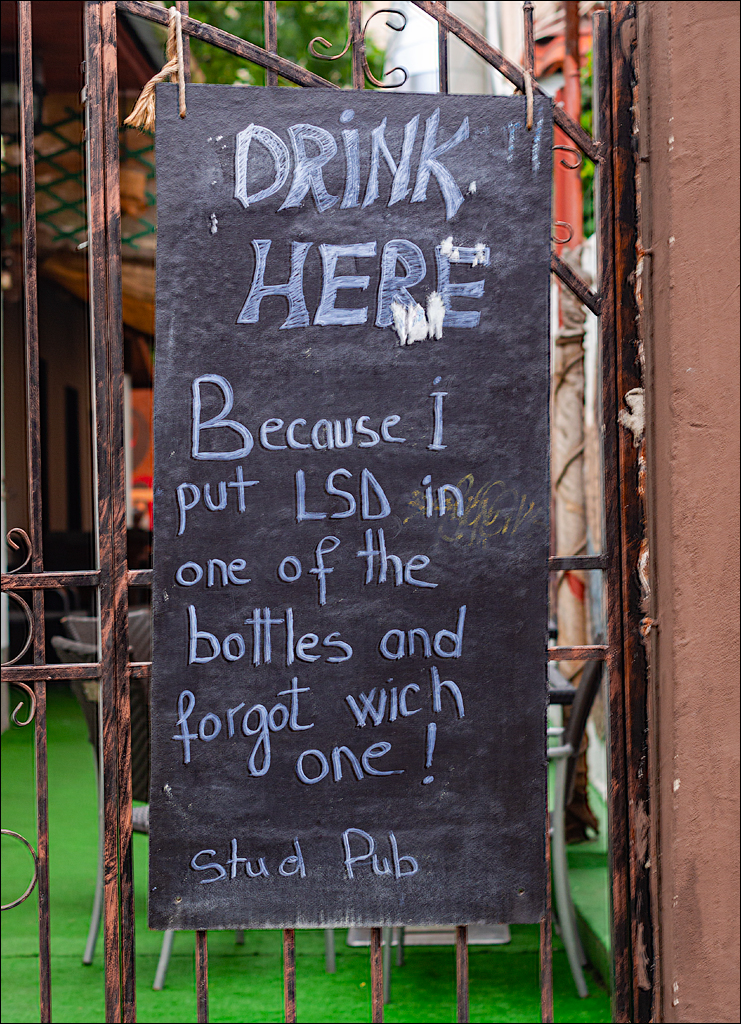 DRINK
HERE
Because i
put LSD in
one of the
bottles and
forgot wich
one!
Stud Pub